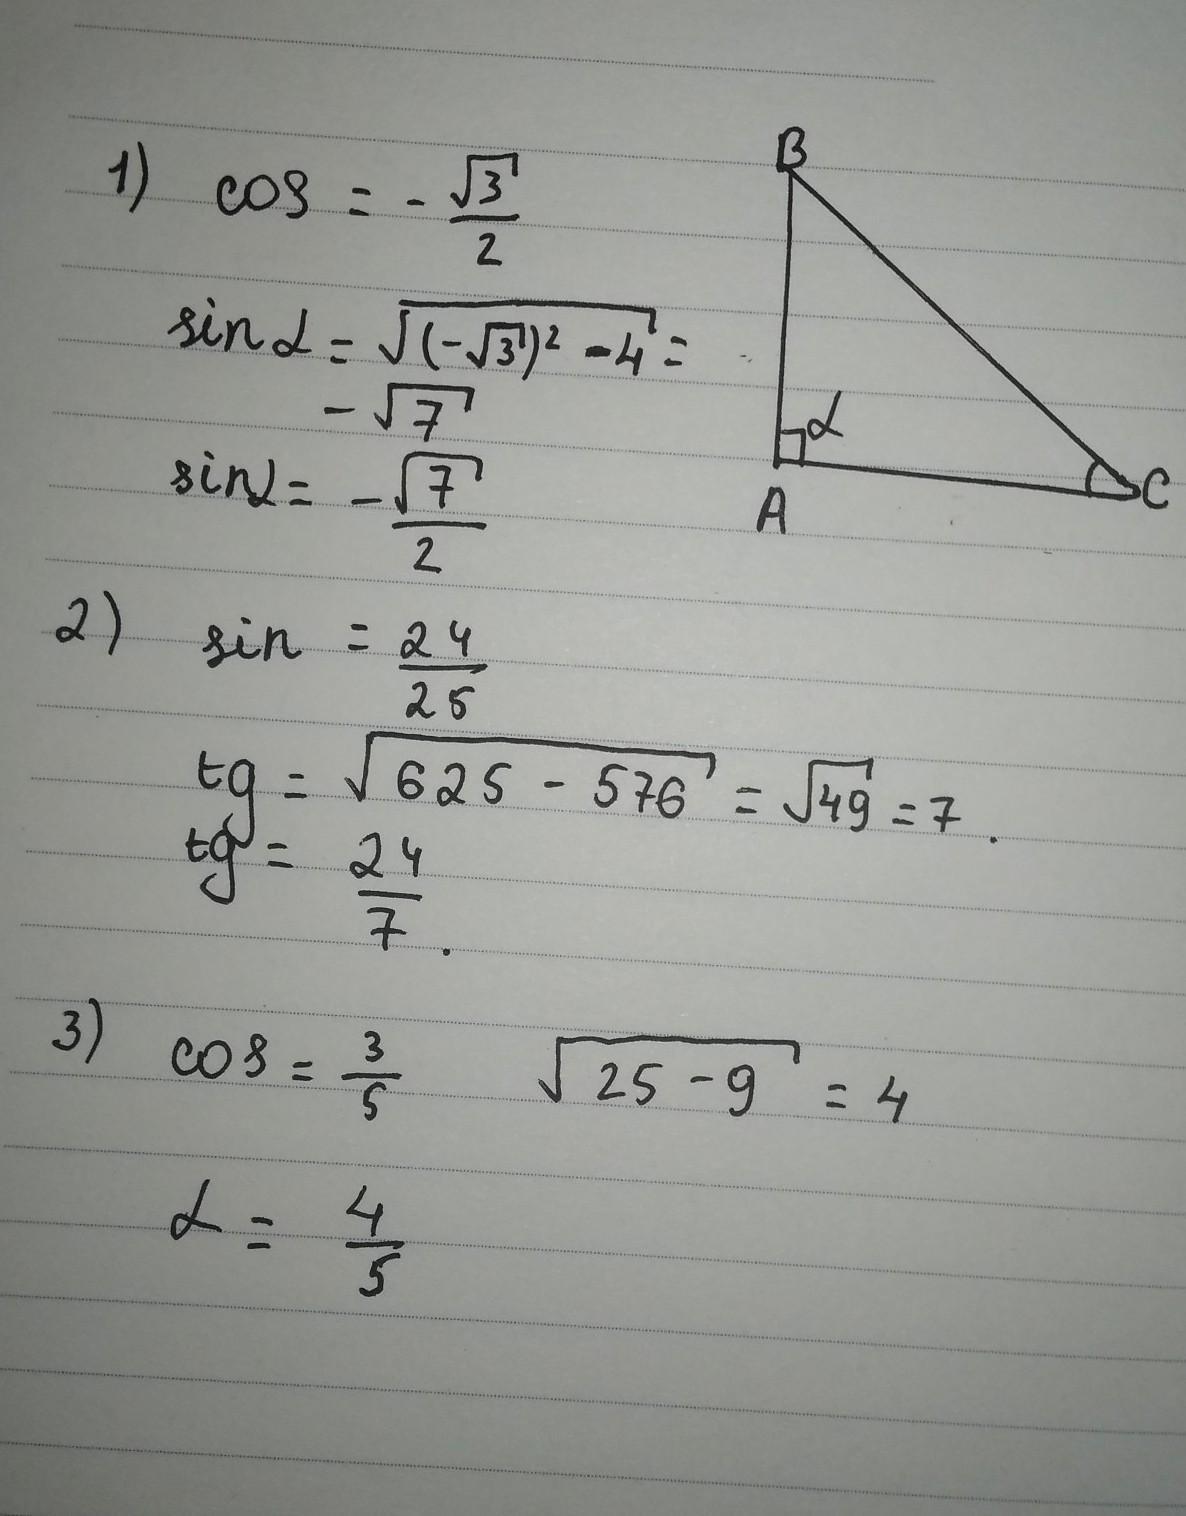 1) cos = - √3/2
B
sin α = √((-√3)² - 4) =
- √7
α
sin α = - √7/2
A
C
2) sin = 24/25
tg = √(625 - 576) = √49 = 7.
tg = 24/7.
3) cos = 3/5 √(25 - 9) = 4
α = 4/5